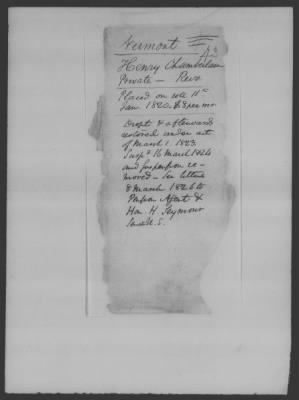 Vermont
Henry Chamberlain
Private — Revo
Placed on role 11th
Jan. 1820. $8 per mo
Dropt & afterwards
restored under act
of March 1. 1823
Susp.d 16 March 1824
and suspension re-
moved — See letters
8 March 1826 to
Pension Agent &
Hon. H. Seymour
Senate U.S.